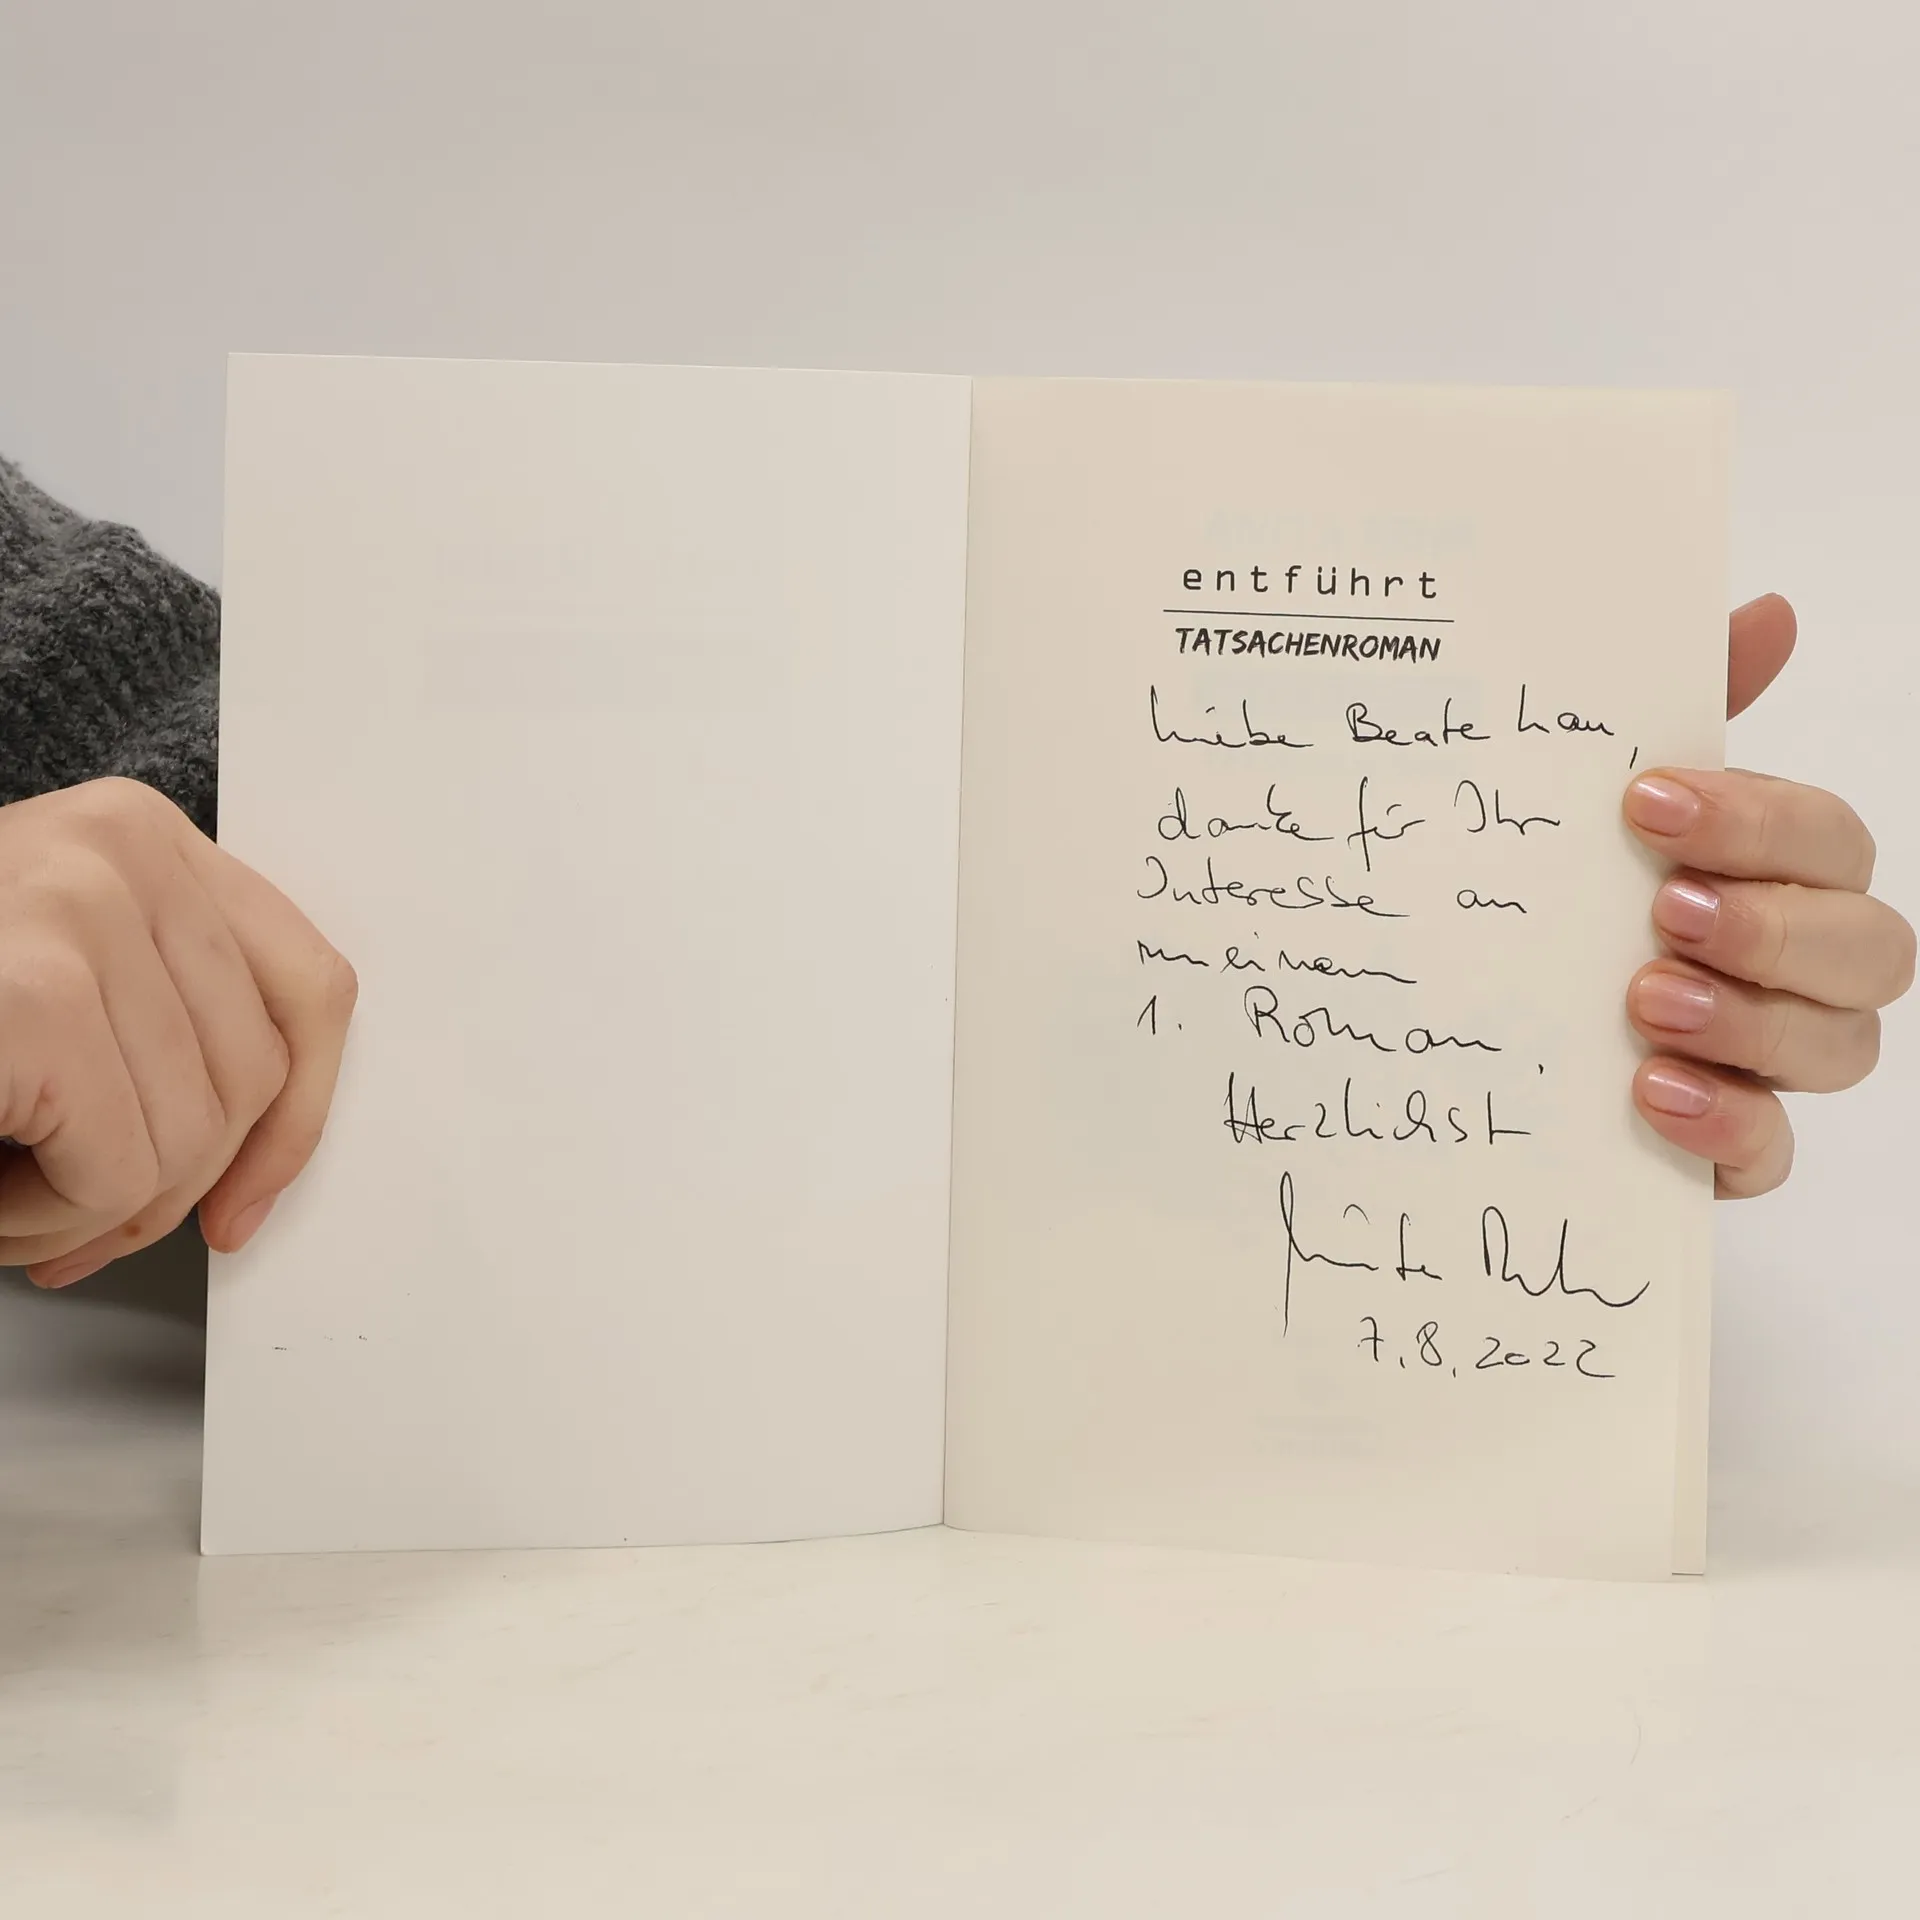 entführt
TATSACHENROMAN
Liebe Beate Lau,
danke für Ihr
Interesse an
meinem
1. Roman.
Herzlichst
7.8.2022